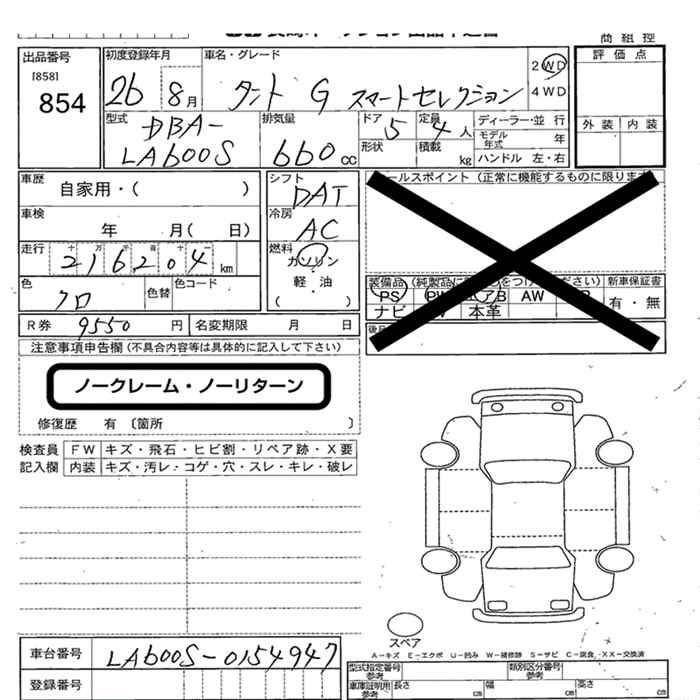 商組控
出品番号
[858]
854
初度登録年月
26 8月
車名・グレード
タント G スマートセレクション
2WD
4WD
評価点
外装 内装
型式
DBA-
LA600S
排気量
660cc
ドア 5
形状
定員 4人
積載 kg
ディーラー・並行
モデル年式 年
ハンドル 左・右
車歴
自家用・( )
車検
年 月( 日)
走行 十 万 千 百 十 一
216204 km
色 クロ
色替
色コード
シフト
DAT
冷房
AC
燃料
ガソリン
軽・油
( )
R券 9550円
名変期限 月 日
ールスポイント (正常に機能するものに限ります
装備品
新車保証書
PS
AW
有・無
ナビ
本革
注意事項申告欄 (不具合内容等は具体的に記入して下さい)
ノークレーム・ノーリターン
修復歴 有 〔箇所 〕
検査員記入欄
FW キズ・飛石・ヒビ割・リペア跡・X要
内装 キズ・汚レ・コゲ・穴・スレ・キレ・破レ
スペア
A-キズ E-エクボ U-凹み W-補修跡 S-サビ C-腐食 XX-交換済
車台番号 LA600S-0154947
登録番号
型式指定番号参考
類別区分番号参考
車庫証明用参考 長さ cm 幅 cm 高さ cm